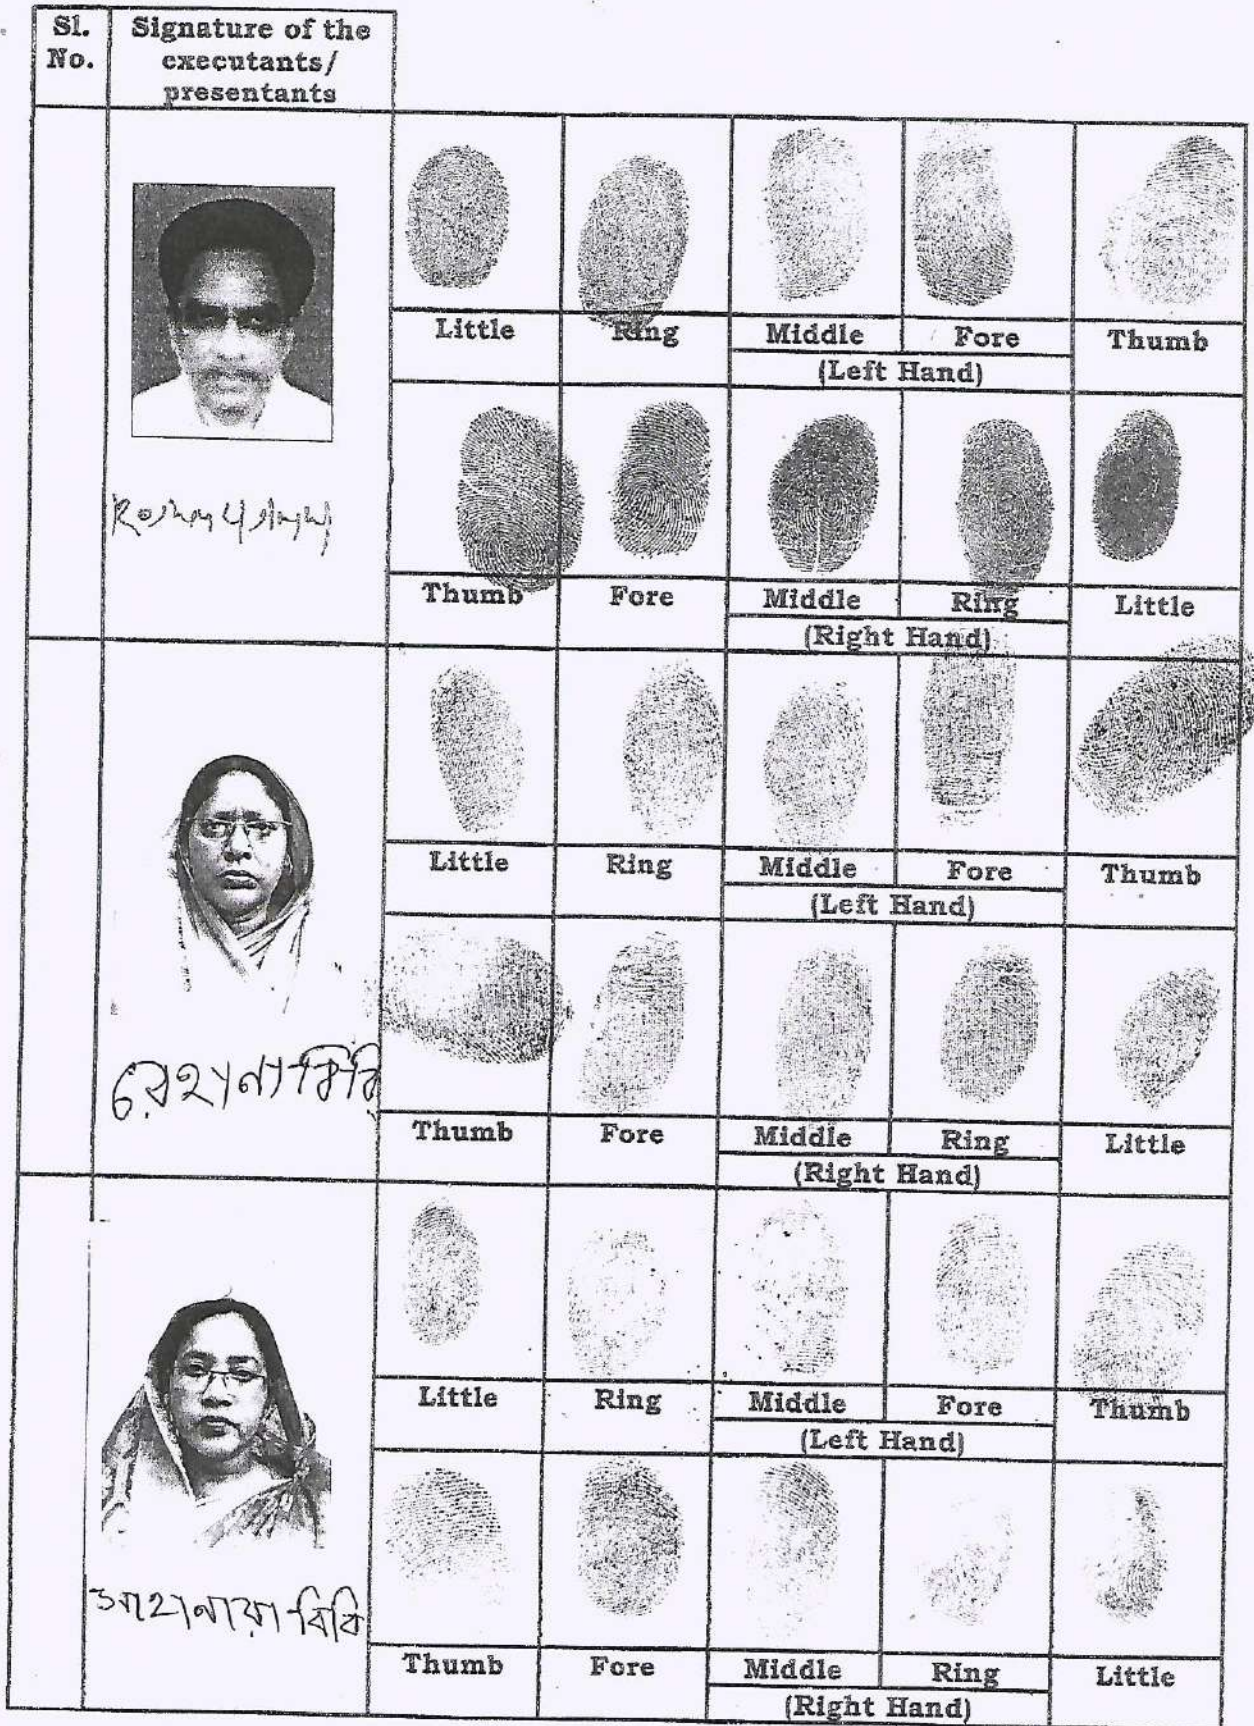 Sl. No.
Signature of the executants/ presentants
Little Ring Middle Fore Thumb
(Left Hand)
Thumb Fore Middle Ring Little
(Right Hand)
রেহানা বিবি
Little Ring Middle Fore Thumb
(Left Hand)
Thumb Fore Middle Ring Little
(Right Hand)
বিবি
Little Ring Middle Fore Thumb
(Left Hand)
Thumb Fore Middle Ring Little
(Right Hand)